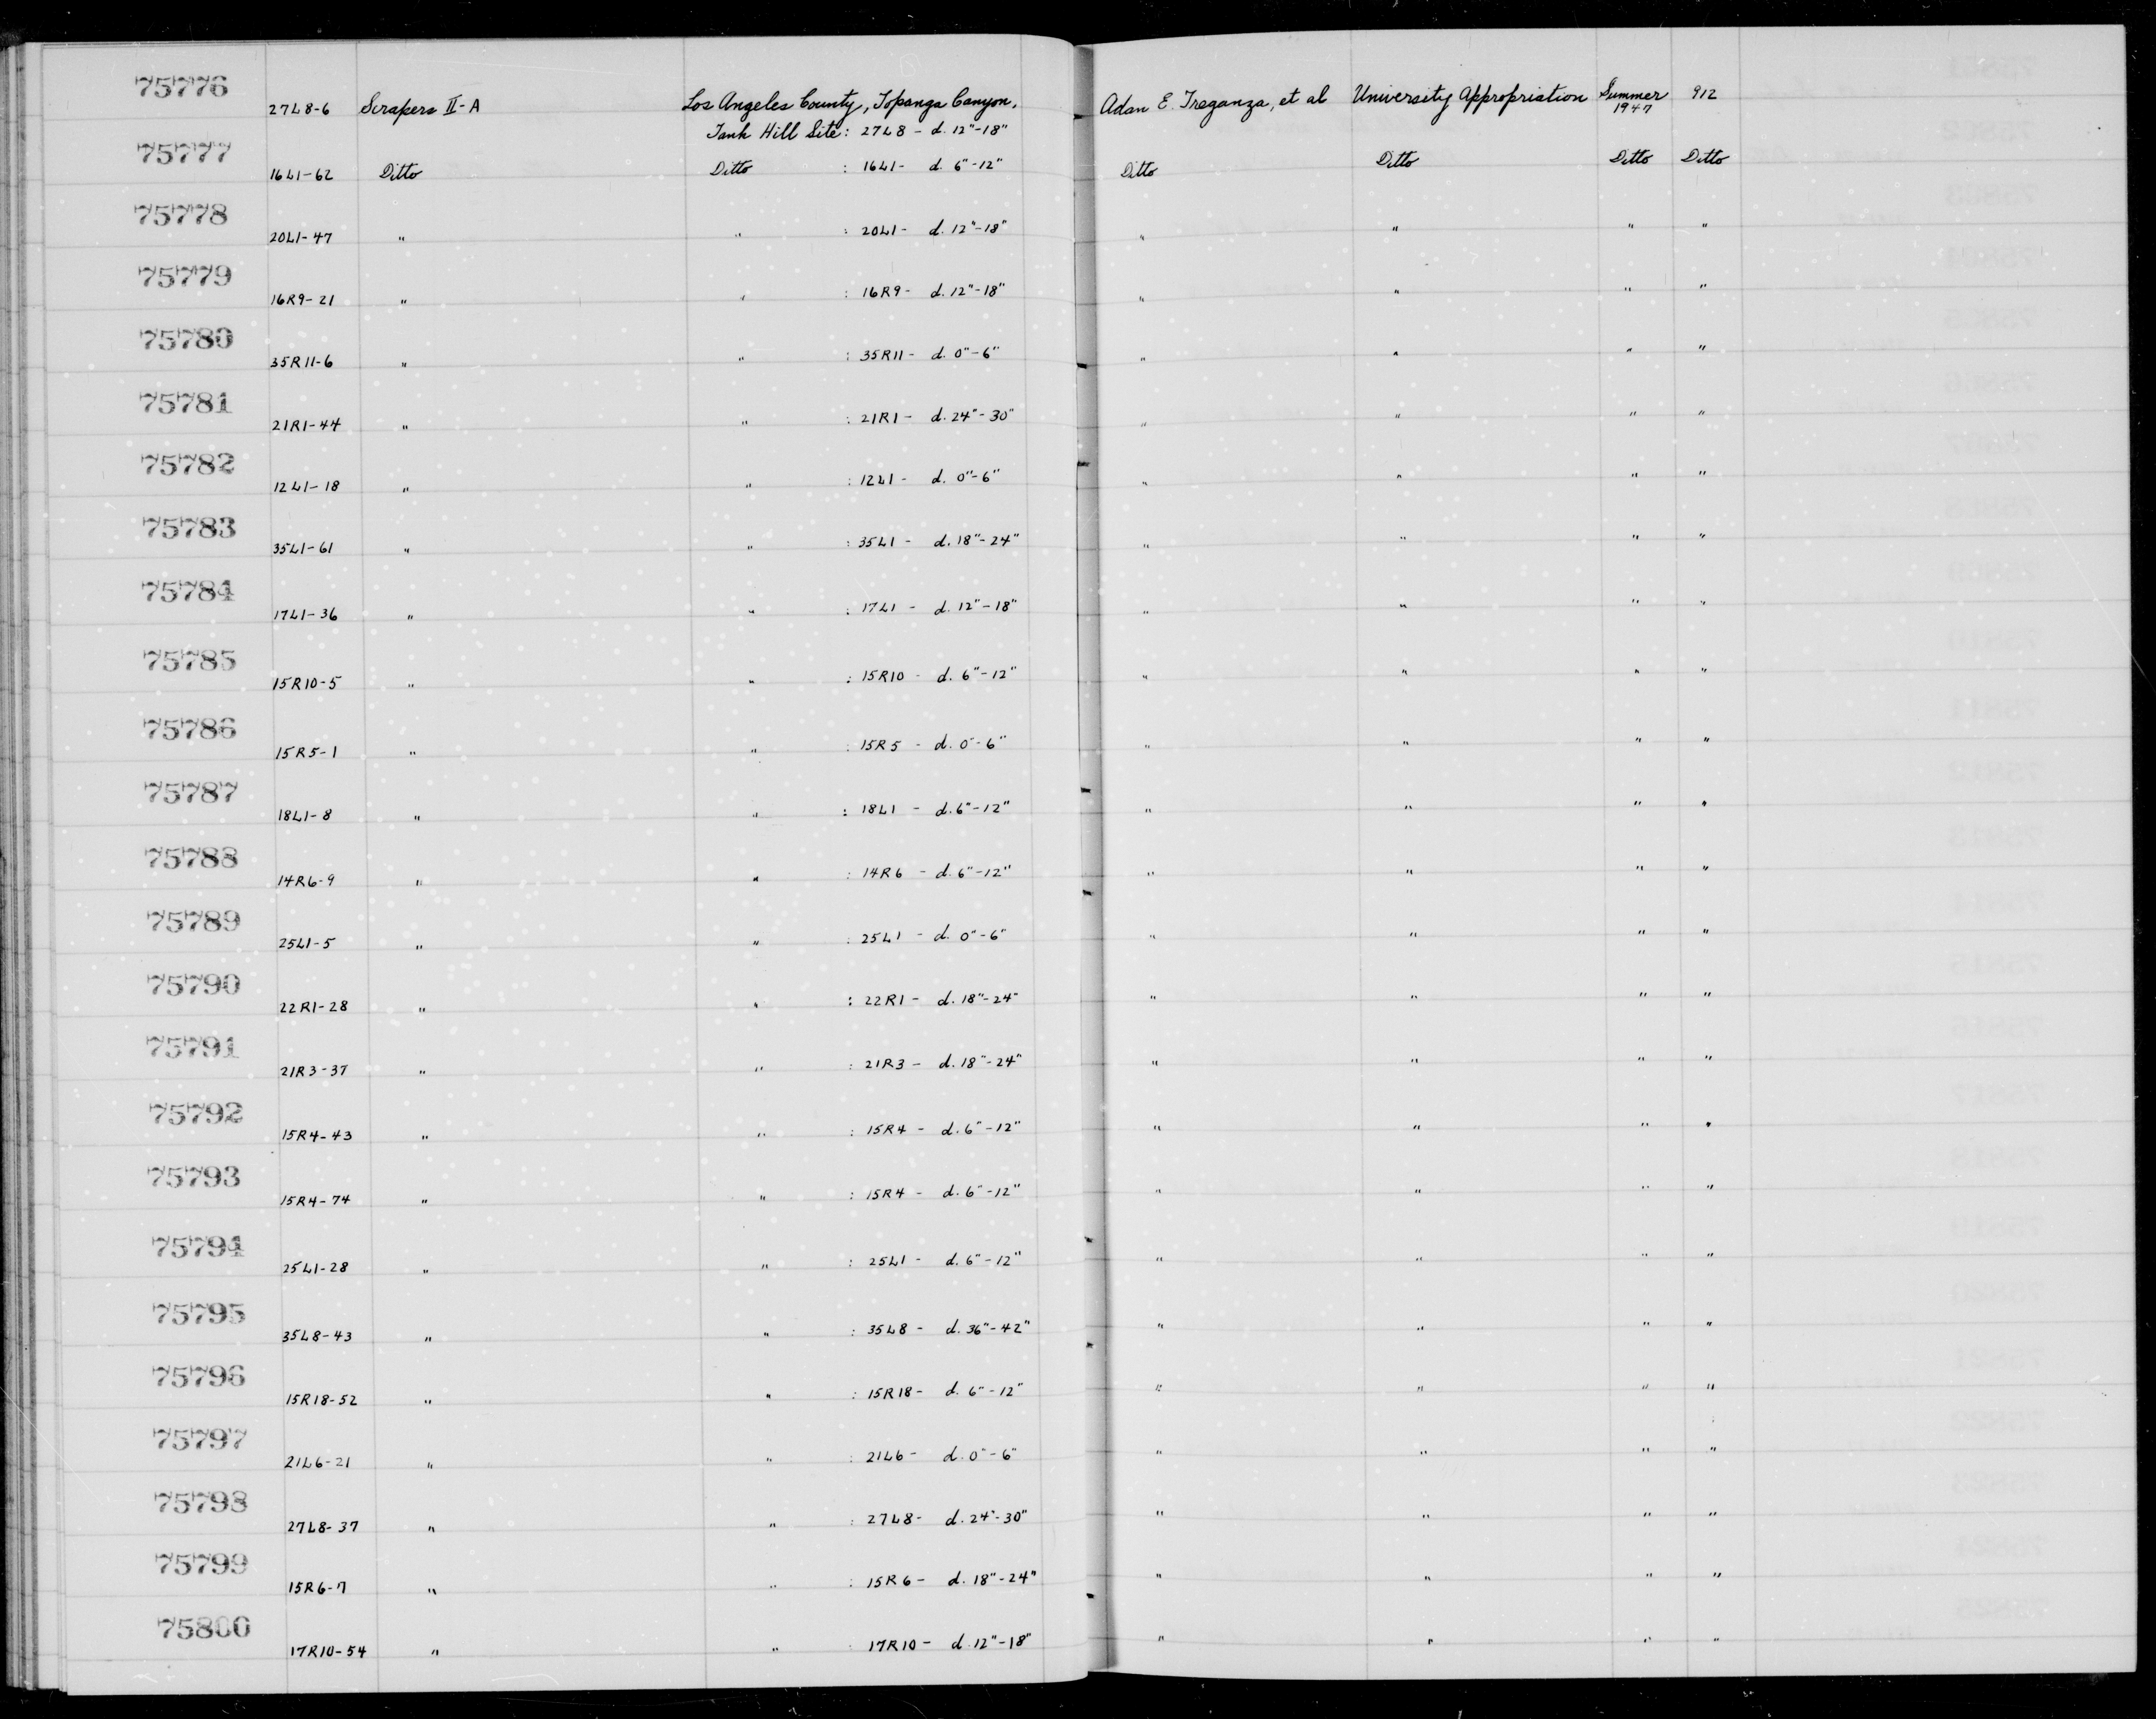 75776 27L8-6 Scrapers II-A Los Angeles County, Topanga Canyon, Adan E. Treganza, et al University Appropriation Summer 1947 912
Tank Hill Site: 27L8 - d. 12"-18"
75777 16L1-62 Ditto Ditto : 16L1- d. 6"-12" Ditto Ditto Ditto Ditto
75778 20L1-47 " " : 20L1- d. 12"-18" " " " "
75779 16R9-21 " " : 16R9- d. 12"-18" " " " "
75780 35R11-6 " " : 35R11- d. 0"-6" " " " "
75781 21R1-44 " " : 21R1- d. 24"-30" " " " "
75782 12L1-18 " " : 12L1- d. 0"-6" " " " "
75783 35L1-61 " " : 35L1- d. 18"-24" " " " "
75784 17L1-36 " " : 17L1- d. 12"-18" " " " "
75785 15R10-5 " " : 15R10- d. 6"-12" " " " "
75786 15R5-1 " " : 15R5- d. 0"-6" " " " "
75787 18L1-8 " " : 18L1- d. 6"-12" " " " "
75788 14R6-9 " " : 14R6- d. 6"-12" " " " "
75789 25L1-5 " " : 25L1- d. 0"-6" " " " "
75790 22R1-28 " " : 22R1- d. 18"-24" " " " "
75791 21R3-37 " " : 21R3- d. 18"-24" " " " "
75792 15R4-43 " " : 15R4- d. 6"-12" " " " "
75793 15R4-74 " " : 15R4- d. 6"-12" " " " "
75794 25L1-28 " " : 25L1- d. 6"-12" " " " "
75795 35L8-43 " " : 35L8- d. 36"-42" " " " "
75796 15R18-52 " " : 15R18- d. 6"-12" " " " "
75797 21L6-21 " " : 21L6- d. 0"-6" " " " "
75798 27L8-37 " " : 27L8- d. 24"-30" " " " "
75799 15R6-7 " " : 15R6- d. 18"-24" " " " "
75800 17R10-54 " " : 17R10- d. 12"-18" " " " "